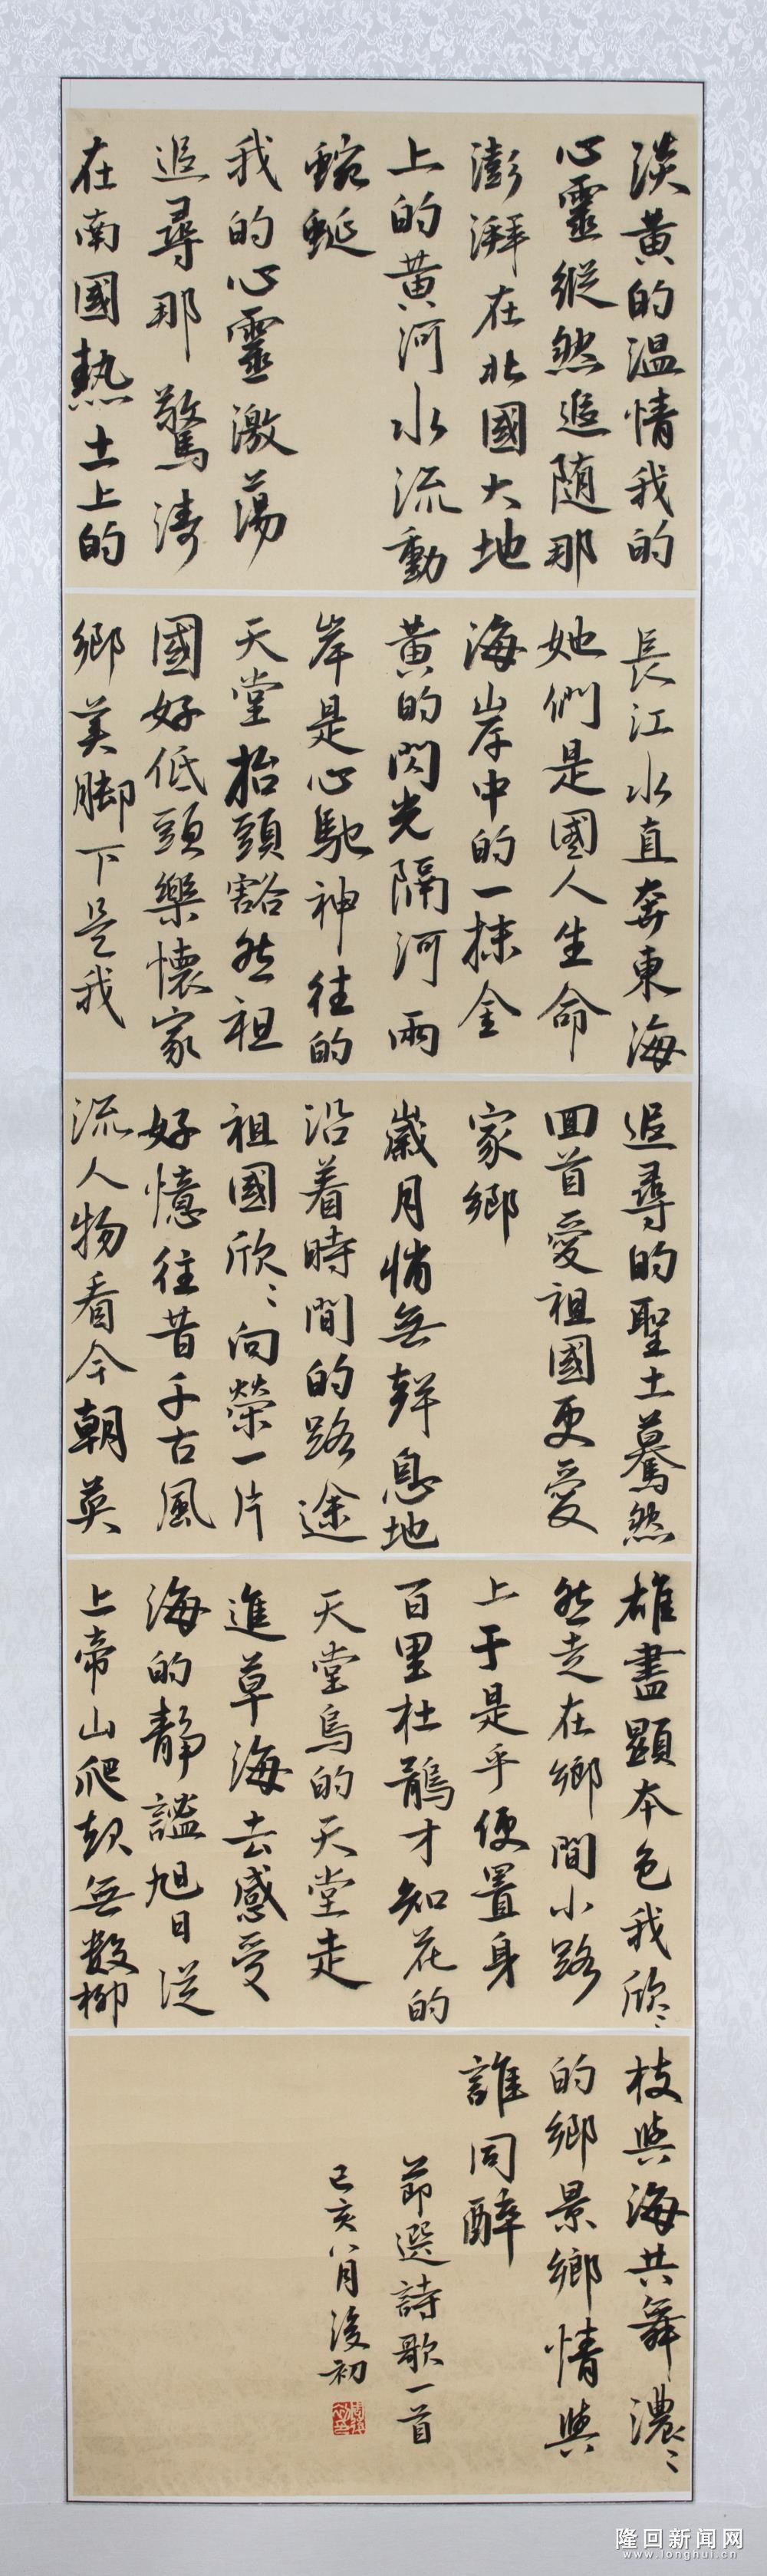 淡黄的温情我的
心靈縱然追随那
澎湃在北國大地
上的黄河水流動
蜿蜒
我的心靈激蕩
追尋那驚濤
在南國熱土上的
長江水直奔東海
她們是國人生命
海岸中的一抹金
黄的閃光隔河兩
岸是心馳神往的
天堂抬頭豁然祖
國好低頭樂懷家
鄉美脚下是我
追尋的聖土驀然
回首愛祖國更愛
家鄉
歲月悄無聲息地
沿着時間的路途
祖國欣〻向榮一片
好憶往昔千古風
流人物看今朝英
雄盡顯本色我欣〻
然走在鄉間小路
上于是乎便置身
百里杜鵑才知花的
天堂鳥的天堂走
進草海去感受
海的靜謐旭日從
上帝山爬起無數柳
枝與海共舞濃〻
的鄉景鄉情與
誰同醉
節選詩歌一首
己亥八月後初
隆回新闻网
www.longhui.cn